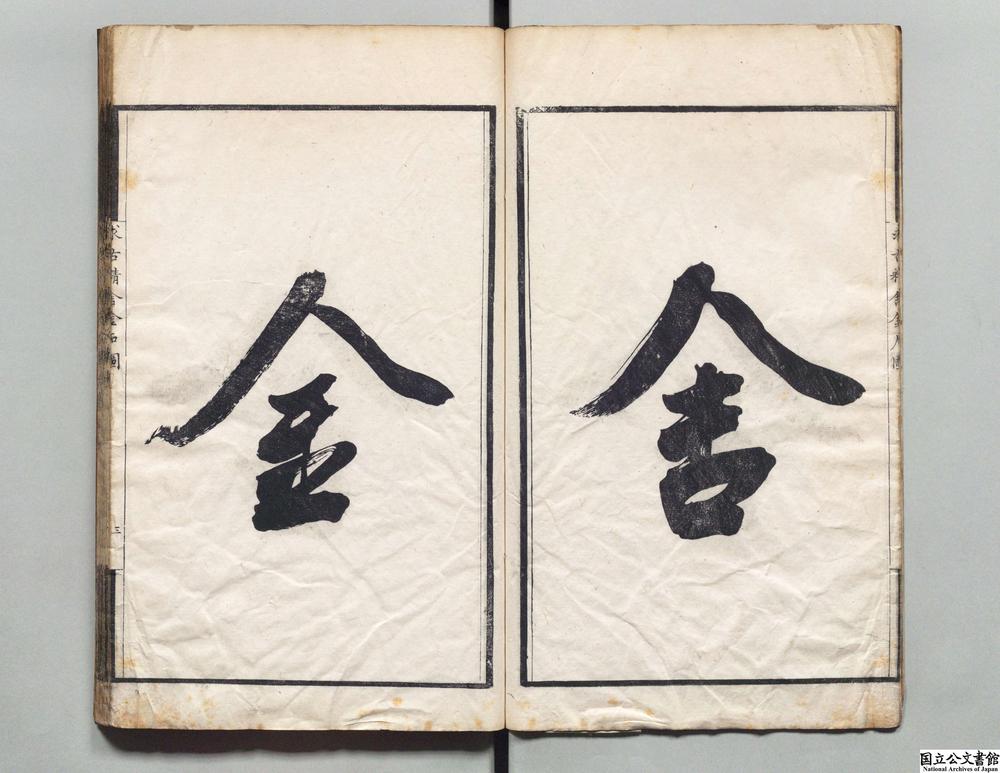 舎
金
求古精舎金石圖
三
求古精舎金石圖
国立公文書館
National Archives of Japan